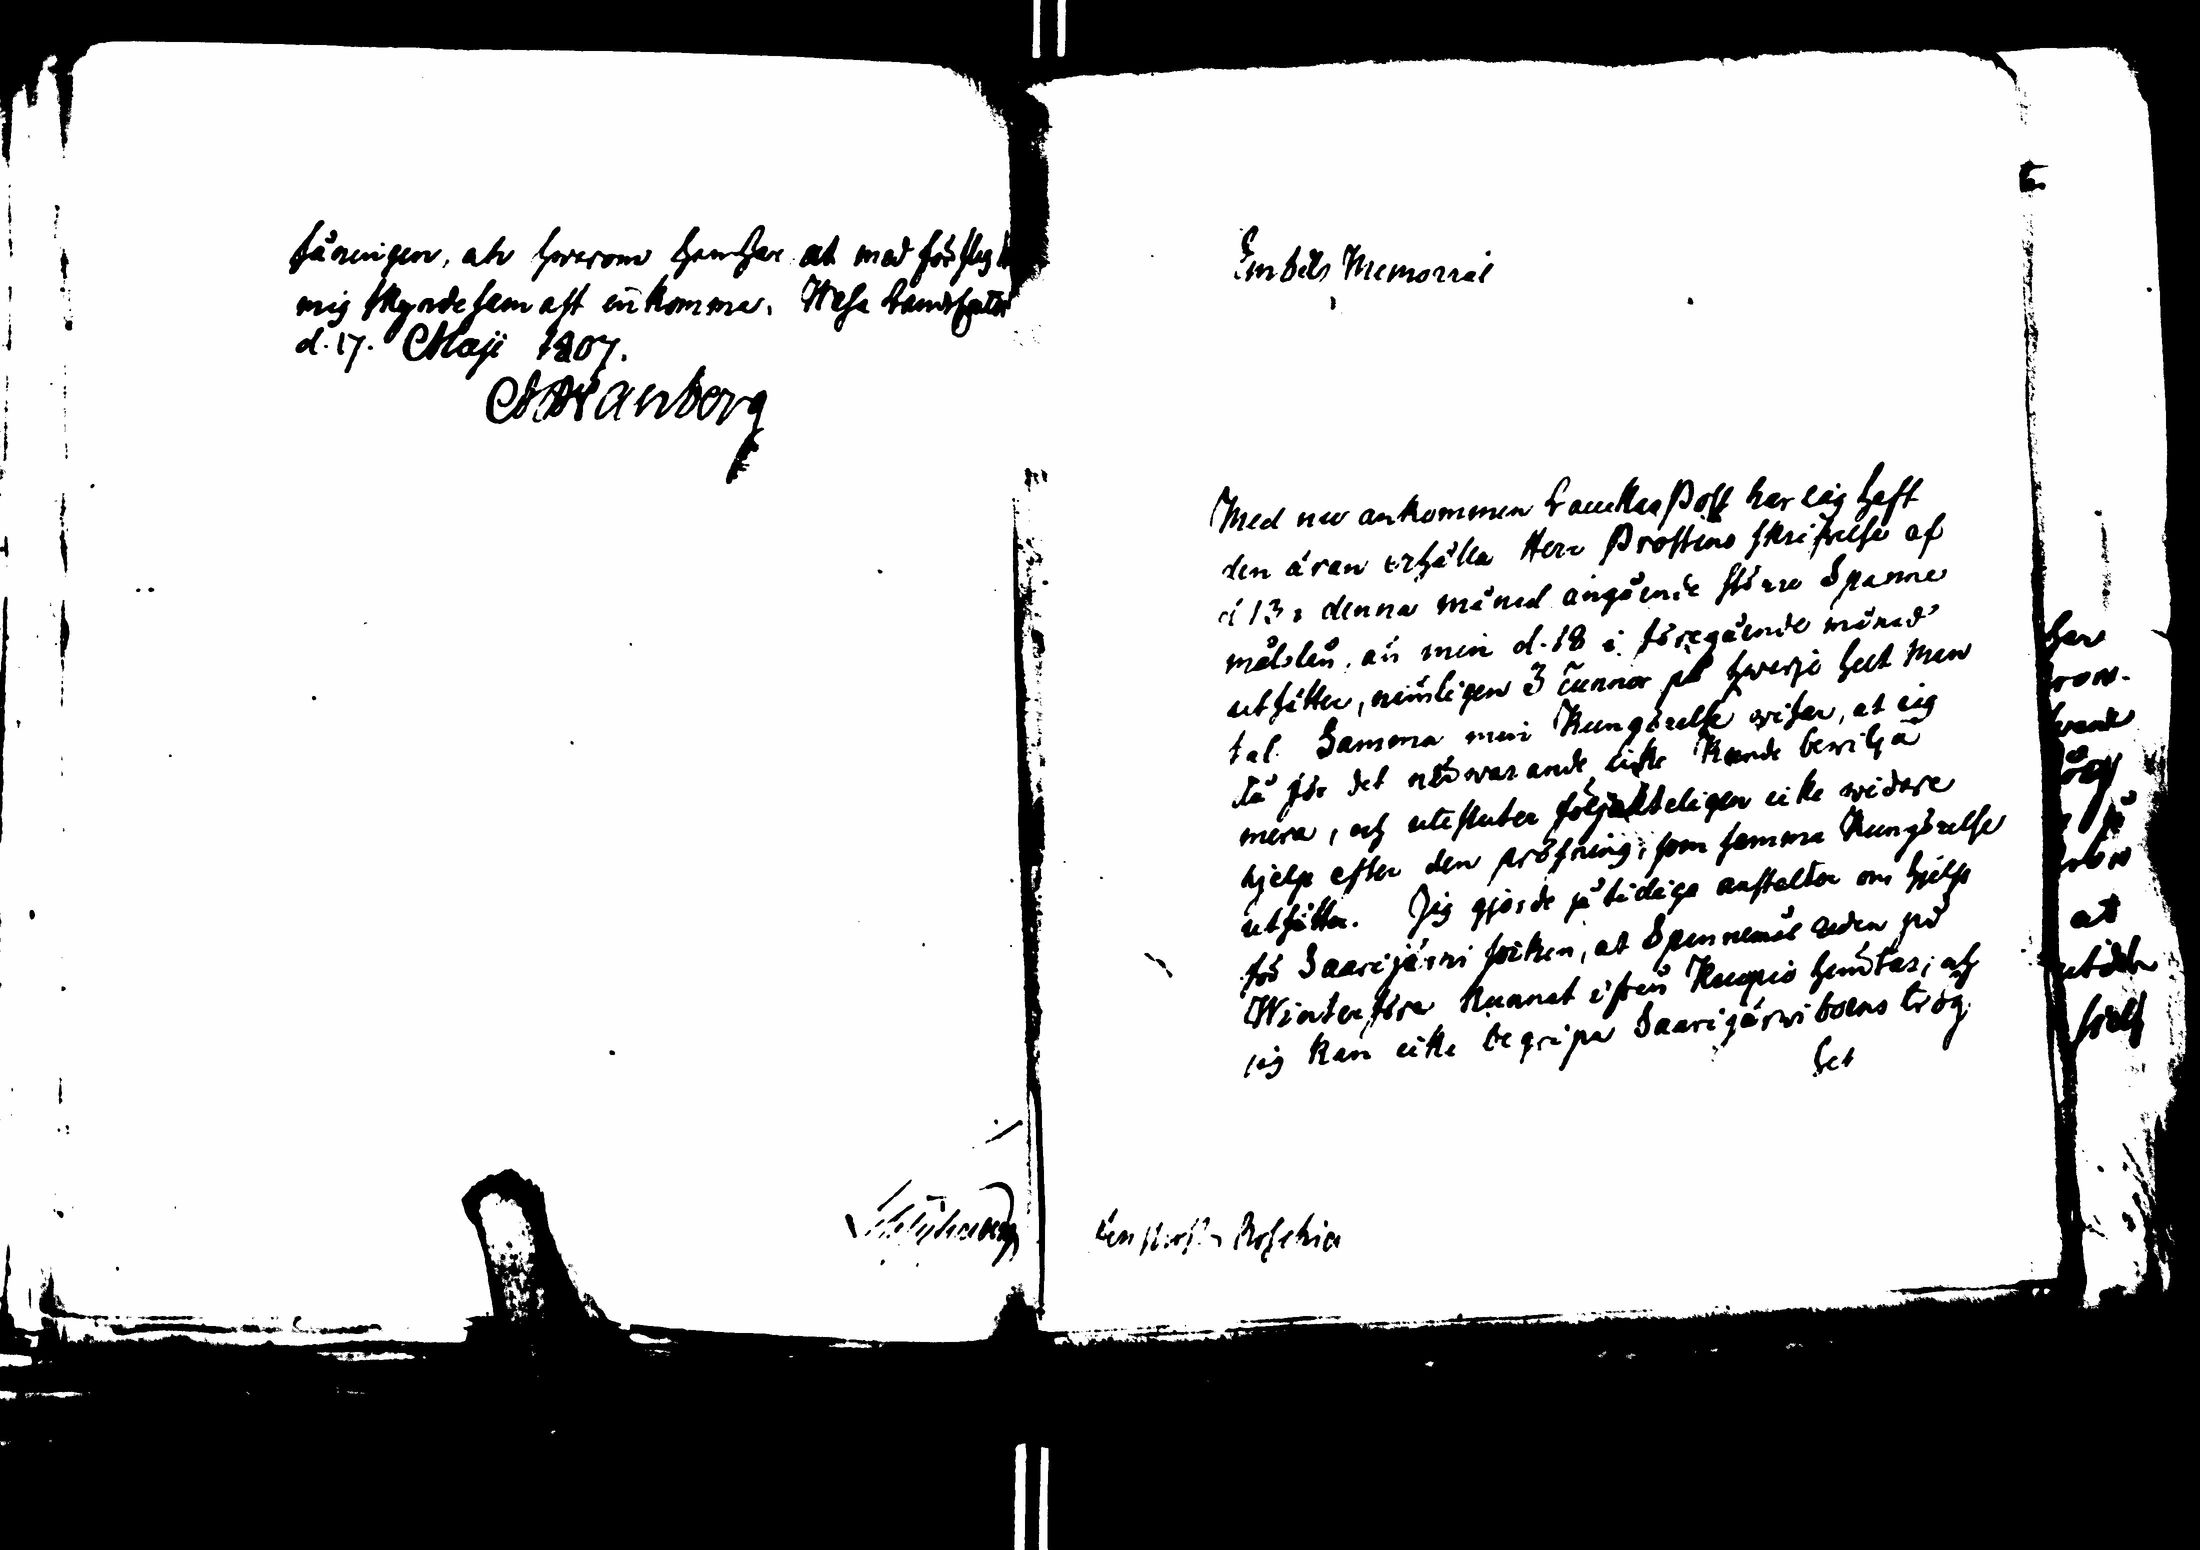 täningen, och hvarom han har at med förslag
mig skyndesamast inkomma. Wasa Landshöfd
d. 17. Maji 1807.
Wanberg
Embets Memorial
Med nu ankommen Laukas Post har jag haft
den äran erhålla Herr Prostens skrifvelse af
d 13 i denna månad angående större Spanne
måls lån, än min d. 18 i föregående månad
utsätter, nämligen 3 tunnor på hvarje helt Man
tal. Samma min Kungörelse wisar, at jag
då för det närwarande icke kunde bewilja
mera, och utesluter följakteligen icke widare
hjelp efter den pröfning, som samma Kungörelse
utsätter. Jag gjorde så tidiga anstalter om hjelp
för Saarijärwi Sokn, at Spannemål redan på
Winterföre kunnat ifrån Kuopio hemtas, och
jag kan icke begripa Saarijärwiboens trög
het